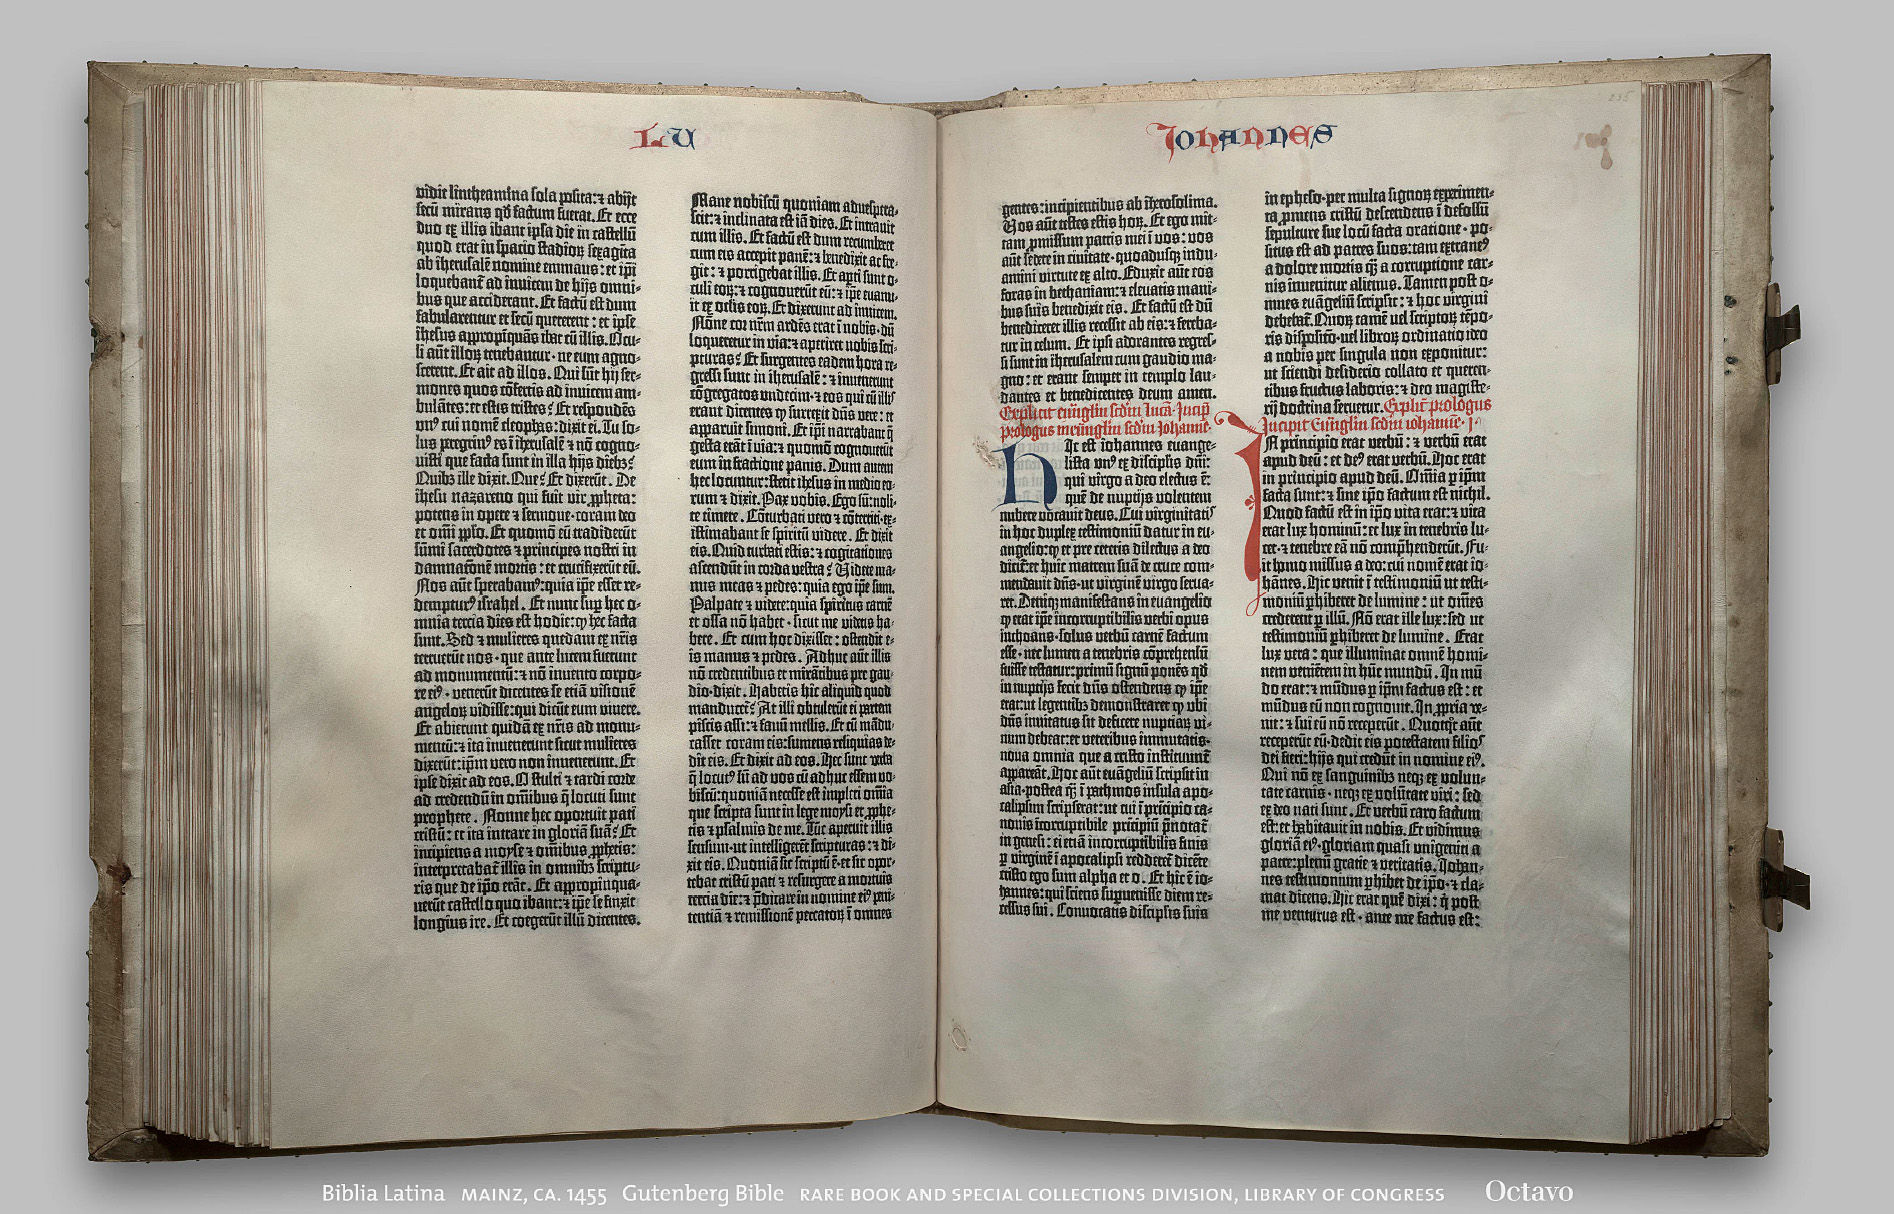 LU
vidit lintheamina sola posita: ⁊ abijt
secū mirans qđ factum fuerat. Et ecce
duo ex illis ibant ipsa die in castellū
quod erat in spacio stadioꝝ sexaginta
ab iherusalē nomine emmaus: et ip̄i
loquebant̄ ad invicem de hijs omni-
bus que acciderant. Et factū est dum
fabularentur et secū quererent: et ipse
ihesus appropīquās ibat cū illis. Ocu-
li aūt illoꝝ tenebantur · ne eum agno-
scerent. Et ait ad illos. Qui sūt hij ser-
mones quos cōfertis ad invicem am-
bulātes: et estis tristes? Et respondēs
vnꝰ cui nomē cleophas: dixit ei. Tu so-
lus peregrinꝰ es ī iherusalē ⁊ nō cogno-
uisti que facta sunt in illa hijs diebꝫ?
Quibꝫ ille dixit. Que? Et dixerūt. De
ihesu nazareno qui fuit vir ꝓpheta:
potens in opere ⁊ sermone · coram deo
et om̄i ꝓp̄lo. Et quomō eū tradiderūt
sūmi sacerdotes ⁊ principes nostri in
damnatōnē mortis: et crucifixerūt eū.
Nos aūt sperabamꝰ: quia ip̄e esset re-
demptuꝝ israhel. Et nunc suꝑ hec o-
mnia tercia dies est hodie: ꝙ hec facta
sunt. Sed ⁊ mulieres quedam ex nr̄is
terruerūt nos · que ante lucem fuerunt
ad monumentū: ⁊ nō invento corpo-
re eiꝰ · venerūt dicentes se etiā visionē
angeloꝝ vidisse: qui dicūt eum vivere.
Et abierunt quidā ex nr̄is ad monu-
mentū: ⁊ ita invenerunt sicut mulieres
dixerūt: ip̄m vero non invenerunt. Et
ipse dixit ad eos. O stulti ⁊ tardi corde
ad credendū in om̄ibus q̄ locuti sunt
prophete. Nonne hec oportuit pati
cristū: et ita intrare in gloriā suā? Et
incipiens a moyse ⁊ om̄ibus ꝓphetis:
interpretabat̄ illis in omnibꝫ scriptu-
ris que de ip̄o erāt. Et appropinqua-
uerūt castello quo ibant: ⁊ ip̄e se finxit
longius ire. Et coegerūt illū dicentes.
Mane nobiscū quoniam advespera-
scit: ⁊ inclinata est iā dies. Et intravit
cum illis. Et factū est dum recumberet
cum eis accepit panē: ⁊ benedixit ac fre-
git: ⁊ porrigebat illis. Et aꝑti sunt o-
culi eoꝝ: ⁊ cognouerūt eū: ⁊ ip̄e evanu-
it ex oclis eoꝝ. Et dixerunt ad invicem.
Nōne cor nr̄m ardēs erat ī nobis · dū
loqueretur in via: ⁊ aperiret nobis scri-
pturas? Et surgentes eadem hora re-
gressi sunt in iherusalē: ⁊ invenerunt
cōgregatos undecim · ⁊ eos qui cū illis
erant dicentes ꝙ surrexit dn̄s vere: et
apparuit simoni. Et ip̄i narrabant q̄
gesta erāt ī via: ⁊ quomō cognouerūt
eum in fractione panis. Dum autem
hec locuntur: stetit ihesus in medio eo-
rum ⁊ dixit. Pax vobis. Ego sū: noli-
te timere. Cōturbati vero ⁊ cōterriti · ex-
istimabant se spiritū videre. Et dixit
eis. Quid turbati estis: ⁊ cogitationes
ascendūt in corda vestra? Videte ma-
nus meas ⁊ pedes: quia ego ip̄e sum.
Palpate ⁊ videte: quia spiritus carnē
et ossa nō habet · sicut me videtis ha-
bere. Et cum hoc dixisset: ostendit e-
is manus ⁊ pedes. Adhuc aūt illis
nō credentibus et mirātibus pre gau-
dio · dixit. Habetis hic aliquid quod
manducet̄? At illi obtulerūt ei partem
piscis assi: ⁊ favū mellis. Et cū mādu-
casset coram eis: sumens reliquias de-
dit eis. Et dixit ad eos. Hec sunt verba
q̄ locutꝰ sū ad vos cū adhuc essem vo-
biscū: quoniā necesse est impleri om̄ia
que scripta sunt in lege moysi et ꝓphe-
tis ⁊ psalmis de me. Tūc aperuit illis
sensum · ut intelligerēt scripturas: ⁊ di-
xit eis. Quoniā sic scriptū ē · et sic opor-
tebat cristū pati ⁊ resurgere a mortuis
tercia die: ⁊ p̄dicare in nomine eiꝰ peni-
tentiā ⁊ remissionē peccatoꝝ ī omnes
Johannes
235
gentes: incipientibus ab iherosolima.
Vos aūt testes estis hoꝝ. Et ego mit-
tam ꝓmissum patris mei ī vos: vos
aūt sedete in civitate · quoadusqꝫ indu-
amini virtute ex alto. Eduxit aūt eos
foras in bethaniam: ⁊ elevatis mani-
bus suis benedixit eis. Et factū est dū
benediceret illis recessit ab eis: ⁊ fereba-
tur in celum. Et ipsi adorantes regres-
si sunt in iherusalem cum gaudio ma-
gno: et erant semper in templo lau-
dantes et benedicentes deum amen.
Explicit euāgliū scdm̄ lucā · Incip̄
prologus in euāgliū scdm̄ Johannē ·
Hic est iohannes euange-
lista vnꝰ ex discipl̄is dn̄i:
qui virgo a deo electus ē:
quē de nuptijs volentem
nubere vocavit deus. Cui virginitatꝭ
in hoc duplex testimoniū datur in eu-
angelio: ꝙ et pre ceteris dilectus a deo
dicit̄: et huic matrem suā de cruce com-
mendavit dn̄s · ut virginē virgo serva-
ret. Deniqꝫ manifestans in euangelio
ꝙ erat ip̄e incorruptibilis verbi opus
inchoans · solus verbū carnē factum
esse · nec lumen a tenebris cōprehensū
fuisse testatur: primū signū ponēs qđ
in nuptijs fecit dn̄s ostendens ꝙ ip̄e
erat: ut legentibꝫ demonstraret ꝙ ubi
dn̄s invitatus sit deficere nuptiaꝝ vi-
num debeat: et veteribus immutatis ·
nova omnia que a cristo instituunt̄
appareāt. Hoc aūt euāgeliū scripsit in
asia · postea q̄ꝫ ī pathmos insula apo-
calipsim scripserat: ut cui ī prīcipio ca-
nonis īcorruptibile prīcipiū p̄notat̄
in genesi: ei etiā incorruptibilis finis
ꝑ virginē ī apocalipsi redderet̄ dicēte
cristo ego sum alpha et o. Et hic ē io-
hannes: qui sciens supervenisse diem re-
cessus sui. Convocatis discipl̄is suis
in epheso · per multa signoꝝ experimen-
ta ꝓmens cristū descendens ī defossū
sepulture sue locū facta oratione · po-
situs est ad patres suos: tam extraneꝰ
a dolore mortis q̄ꝫ a corruptione car-
nis invenitur alienus. Tamen post o-
mnes euāgeliū scripsit: ⁊ hoc virgini
debebat̄. Quoꝝ tamē vel scriptoꝝ tēpo-
ris dispositō · vel libroꝝ ordinatio ideo
a nobis per singula non exponitur:
ut sciendi desiderio collato et queren-
tibus fructus laboris: ⁊ deo magiste-
rij doctrina servetur. Explic̄ prologus
Incipit Euāgliū scdm̄ iohannē · I ·
In principio erat verbū: ⁊ verbū erat
apud deū: et deꝰ erat verbū. Hoc erat
in principio apud deū. Om̄ia ꝑ ip̄m
facta sunt: ⁊ sine ip̄o factum est nichil.
Quod factū est in ip̄o vita erat: ⁊ vita
erat lux hominū: et lux in tenebris lu-
cet · ⁊ tenebre eā nō comp̄henderūt. Fu-
it homo missus a deo: cui nomē erat io-
hānes. Hic venit ī testimoniū ut testi-
moniū ꝑhiberet de lumine: ut om̄es
crederent ꝑ illū. Nō erat ille lux: sed ut
testimoniū ꝑhiberet de lumine. Erat
lux vera: que illuminat omnē homi-
nem venientem in hūc mundū. In mū-
do erat: ⁊ mūdus ꝑ ip̄m factus est: et
mūdus eū non cognovit. In ꝓpria ve-
nit: ⁊ sui eū nō receperūt. Quotq̇t aūt
receperūt eū · dedit eis potestatem filioꝭ
dei fieri: hijs qui credūt in nomine eiꝰ.
Qui nō ex sanguinibꝫ neqꝫ ex volun-
tate carnis · neqꝫ ex volūtate viri: sed
ex deo nati sunt. Et verbū caro factum
est: et habitavit in nobis. Et vidimus
gloriā eiꝰ · gloriam quasi unigeniti a
patre: plenū gratie ⁊ veritatis. Johan-
nes testimonium ꝑhibet de ip̄o · ⁊ cla-
mat dicens. Hic erat quē dixi: q̇ post
me venturus est · ante me factus est:
Biblia Latina MAINZ, CA. 1455 Gutenberg Bible RARE BOOK AND SPECIAL COLLECTIONS DIVISION, LIBRARY OF CONGRESS Octavo